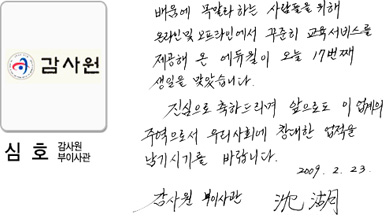 감사원
심 호 감사원
부이사관
배움에 목말라 하는 사람들을 위해
온라인 및 오프라인에서 꾸준히 교육서비스를
제공해 온 에듀윌이 오늘 17번째
생일을 맞았습니다.
진심으로 축하드리며 앞으로도 이 업계의
주역으로서 우리사회에 창대한 업적을
남기시기를 바랍니다.
2009. 2. 23.
감사원 부이사관 沈湖